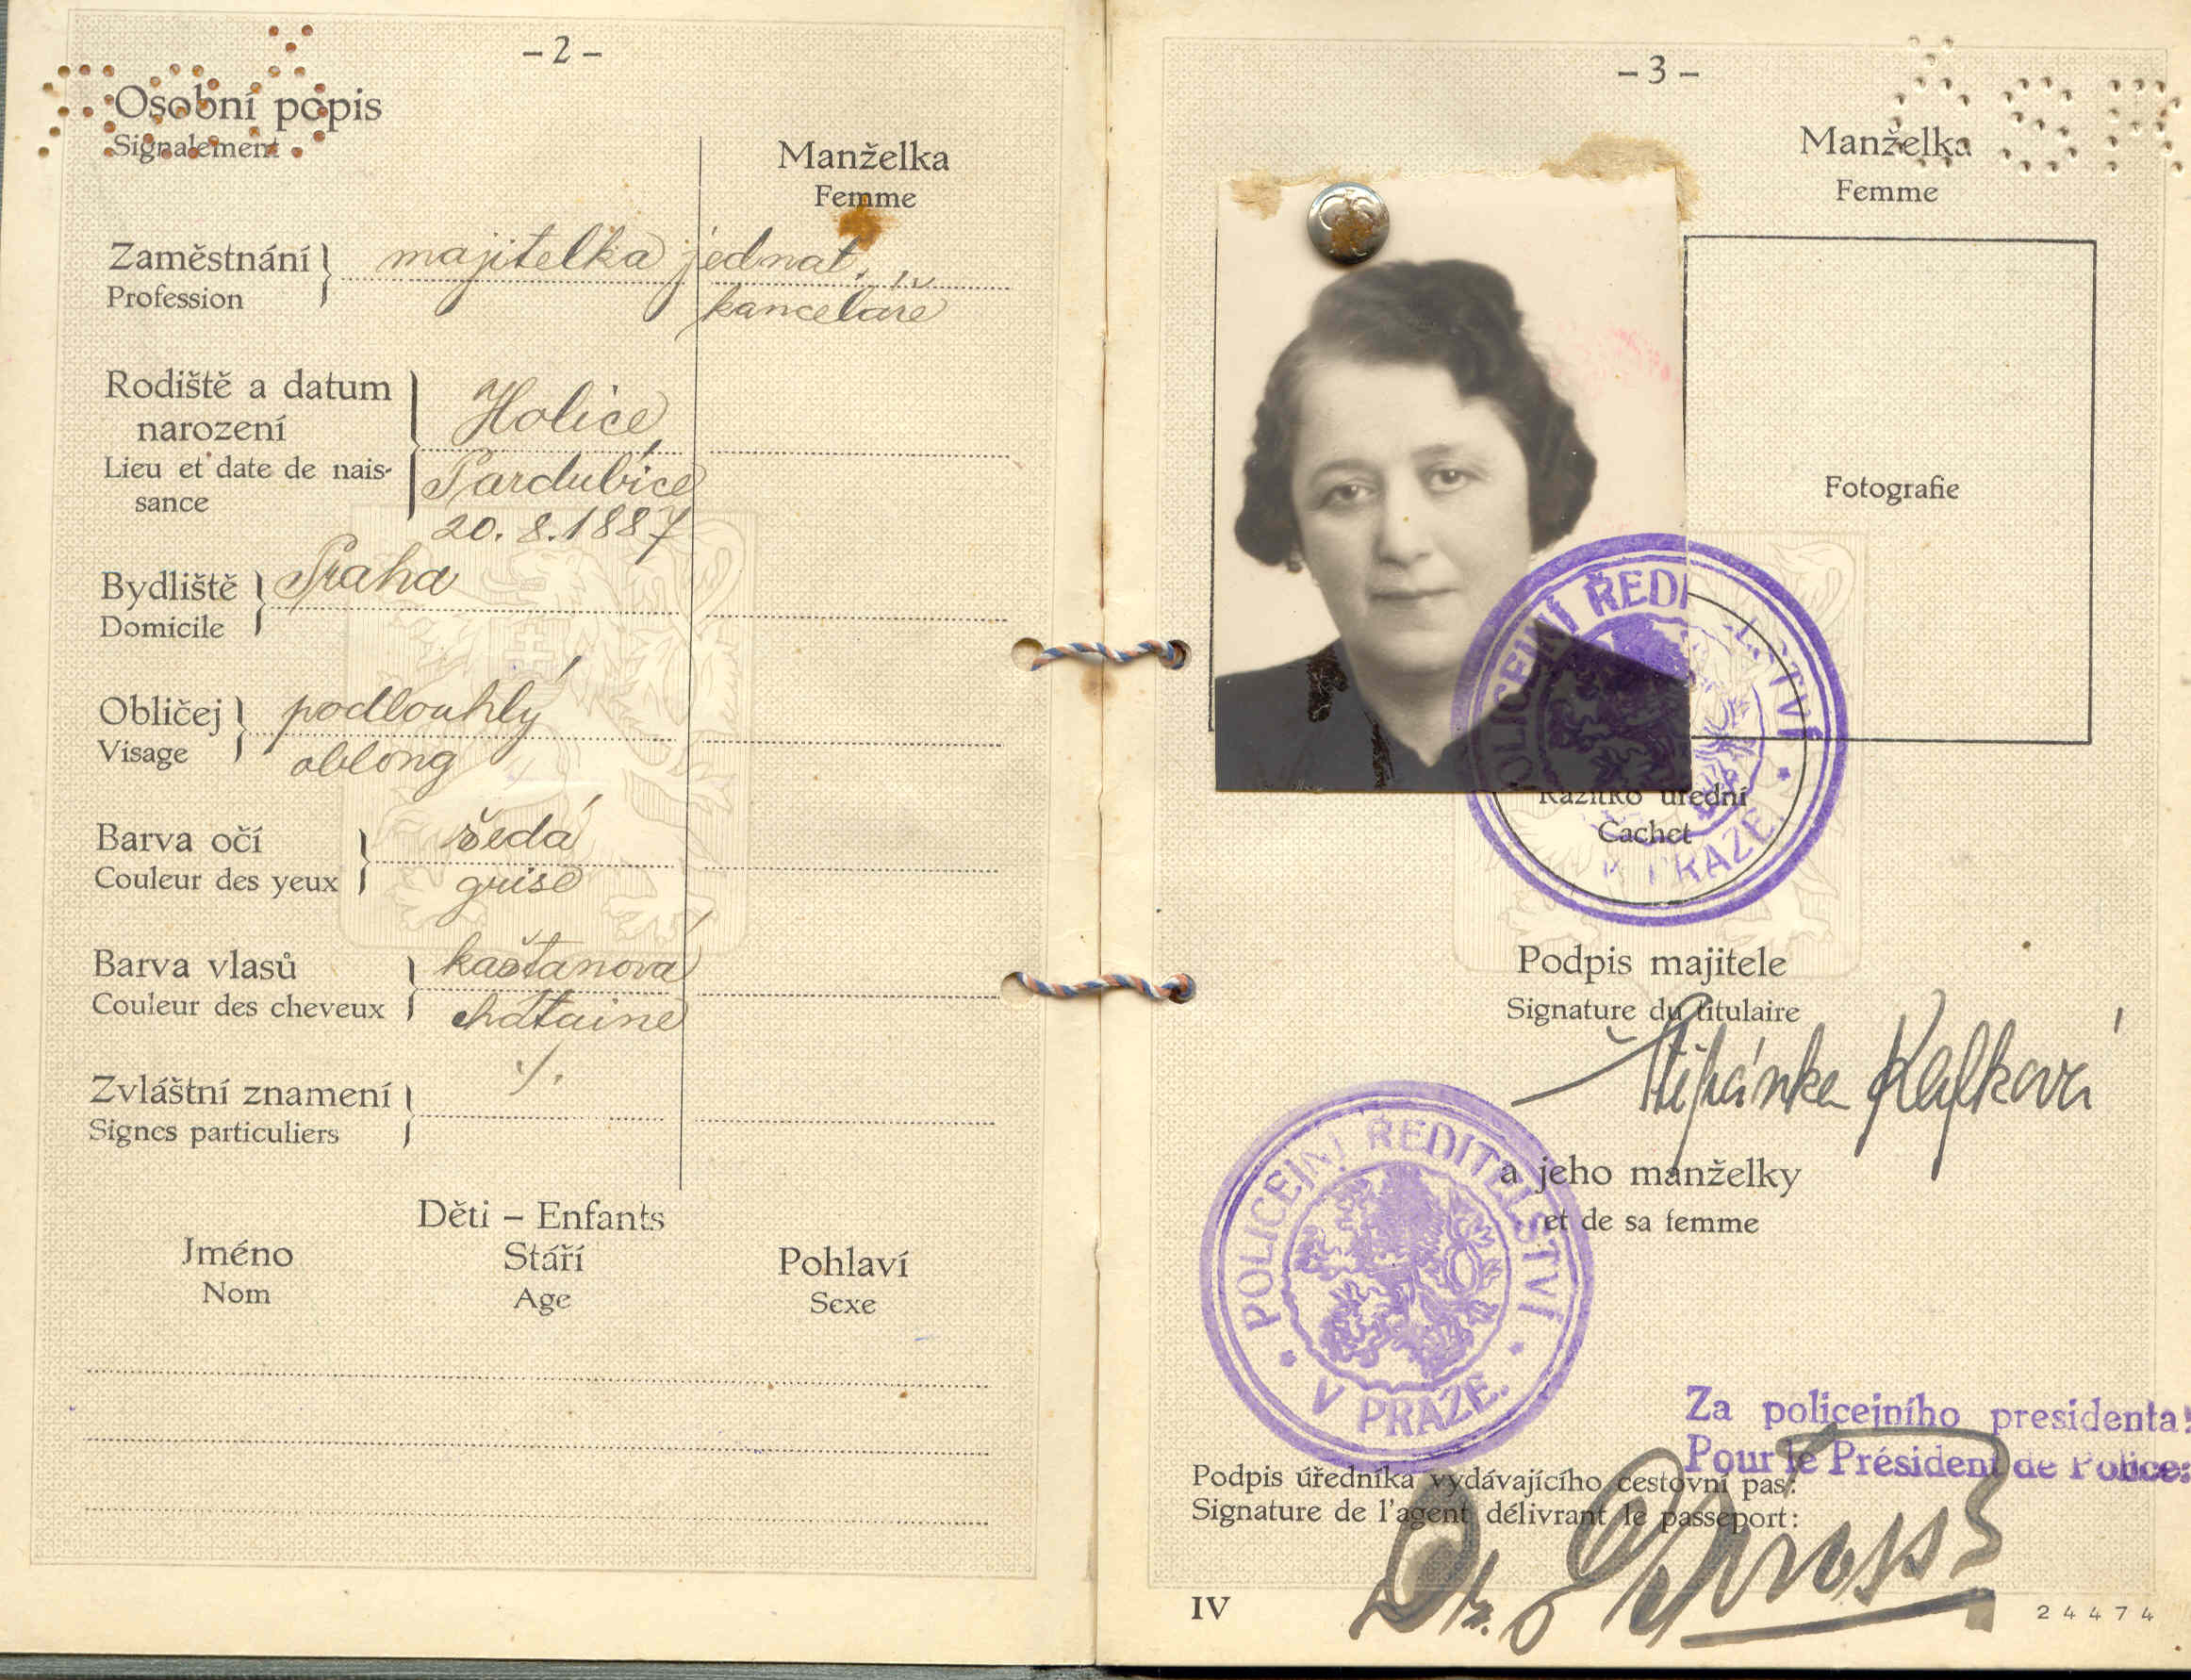 – 2 –
Osobní popis
Signalement
Manželka
Femme
Zaměstnání
Profession
majitelka jednat.
kanceláře
Rodiště a datum
narození
Lieu et date de nais-
sance
Holice
Pardubice
20. 8. 1887
Bydliště
Domicile
Praha
Obličej
Visage
podlouhlý
oblong
Barva očí
Couleur des yeux
šedá
grise
Barva vlasů
Couleur des cheveux
kaštanová
châtaine
Zvláštní znamení
Signes particuliers
./.
Děti – Enfants
Jméno
Nom
Stáří
Age
Pohlaví
Sexe
– 3 –
Manželka
Femme
Fotografie
POLICEJNÍ ŘEDITELSTVÍ
V PRAZE
Razítko úřední
Cachet
Podpis majitele
Signature du titulaire
Štěpánka Kafková
a jeho manželky
et de sa femme
POLICEJNÍ ŘEDITELSTVÍ
V PRAZE.
Za policejního presidenta:
Pour le Président de Police:
Podpis úředníka vydávajícího cestovní pas:
Signature de l'agent délivrant le passeport:
Dr.
IV
24474